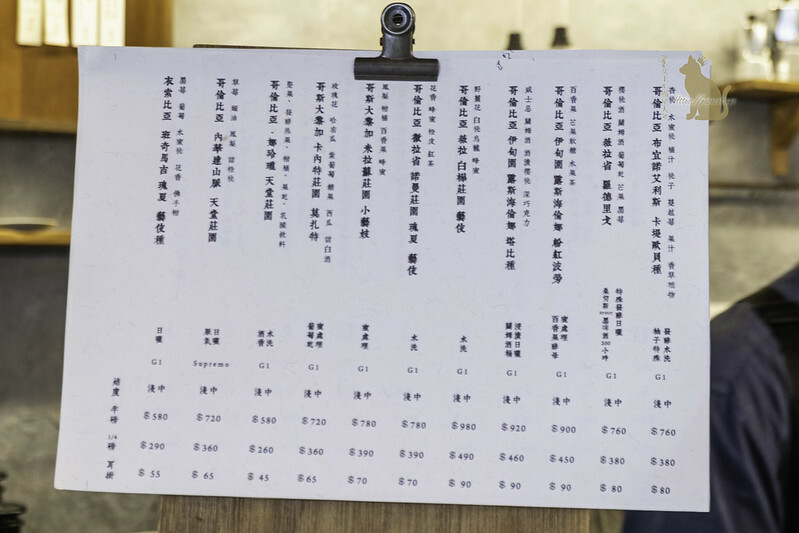 香桃 水蜜桃 橘汁 桃子 蔓越莓 果汁 香草植物
哥倫比亞 布宜諾艾利斯 卡堤歐貝種
發酵水洗
柚子特殊
G1
淺中
$760
$380
$80
櫻桃酒 蘭姆酒 葡萄乾 芒果 黑莓
哥倫比亞 薇拉省 羅德里戈
特殊發酵日曬
G1
淺中
$760
$380
$80
百香果 芒果軟糖 水果茶
哥倫比亞 伊甸園 露斯海倫娜 粉紅波旁
蜜處理
百香果酵母
G1
淺中
$900
$450
$90
威士忌 蘭姆酒 酒漬櫻桃 深巧克力
哥倫比亞 伊甸園 露斯海倫娜 塔比種
浸漬日曬
蘭姆酒桶
G1
淺中
$920
$460
$90
野薑花 白桃烏龍 蜂蜜
哥倫比亞 薇拉 白樺莊園 藝伎
水洗
G1
淺中
$980
$490
$90
花香 蜂蜜 橙皮 紅茶
哥倫比亞 薇拉省 諾曼莊園 瑰夏 藝伎
水洗
G1
淺中
$780
$390
$70
鳳梨 柑橘 百香果 蜂蜜
哥斯大黎加 米拉蘇莊園 小藝妓
蜜處理
G1
淺中
$780
$390
$70
玫瑰花 哈密瓜 紫葡萄 糖果 西瓜 甜白酒
哥斯大黎加 卡內特莊園 莫扎特
蜜處理
葡萄乾
G1
淺中
$720
$360
$65
堅果、發酵瓜果、柑橘、果乾、乳酸飲料
哥倫比亞．娜玲瓏 天堂莊園
水洗
酒香
G1
淺中
$580
$260
$45
草莓 楓油 鳳梨 甜橙桃
哥倫比亞 內華達山脈 天堂莊園
日曬
厭氧
Supremo
淺中
$720
$360
$65
黑莓 葡萄 水蜜桃 花香 佛手柑
衣索比亞 班奇馬吉 瑰夏 藝伎種
日曬
G1
淺中
$580
$290
$55
焙度 半磅 1/4磅 耳掛